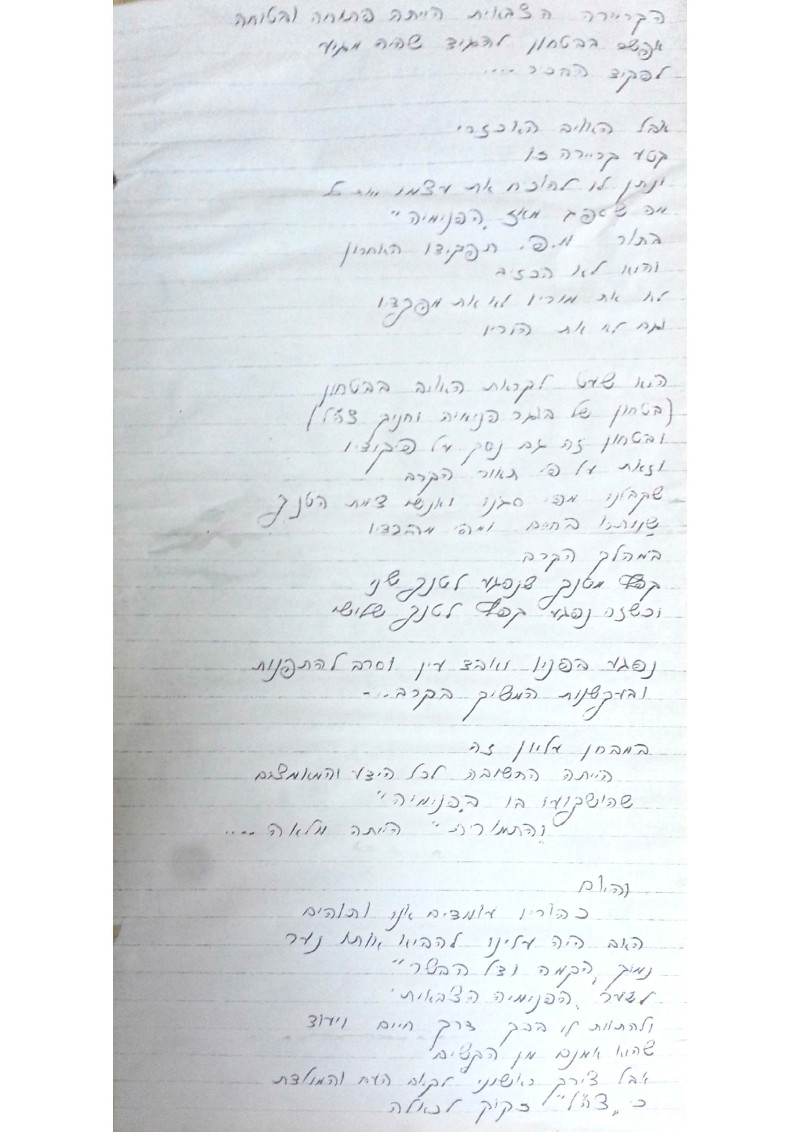 הקריירה הצבאית הייתה פתוחה ובטוחה
אפשר בבטחון להגיד שהיה מגיע
לפקיד הבכיר ....
אבל האויב האכזרי
קטע קריירה זו
ניתן לו להוכיח את עצמו ואת כל
מה שספג מאז "הפנימיה"
בתור מ.פ. תפקידו האחרון
והוא לא הכזיב
לא את מוריו לא את מפקדיו
וגם לא את הוריו
הוא שעט לקראת האויב בבטחון
(בטחון של בוגר פנימיה וחניך צה"ל)
ובטחון זה גם נסך על פיקודיו
וזאת על פי תאור הקרב
שקבלנו מפי סגנו ואנשי צוות הטנק
שנותרו בחיים ומפי מפקדיו
במהלך הקרב
קפץ מטנק שנפגע לטנק שני
וכשזה נפגע קפץ לטנק שלישי
נפגע בפניו ואיבד עין וסרב להתפנות
ובעקשנות המשיך בקרב...
במבחן עליון זה
הייתה התשובה לכל הידע והמאמצים
שהושקעו בו ב"פנימיה"
ו"התמורה" הייתה מלאה ....
והיום
כהוריו עומדים אנו ותוהים
האם היה עלינו להביא אותו נער
נמוך "הקמה ודל הבשר"
לשער "הפנימיה הצבאית"
ולהתוות לו בכך דרך חיים ויעוד
שהוא אמנם מן הקשים
אבל צורך ראשוני לקיום העם והמולדת
כי "צה"ל" זקוק לכאלה